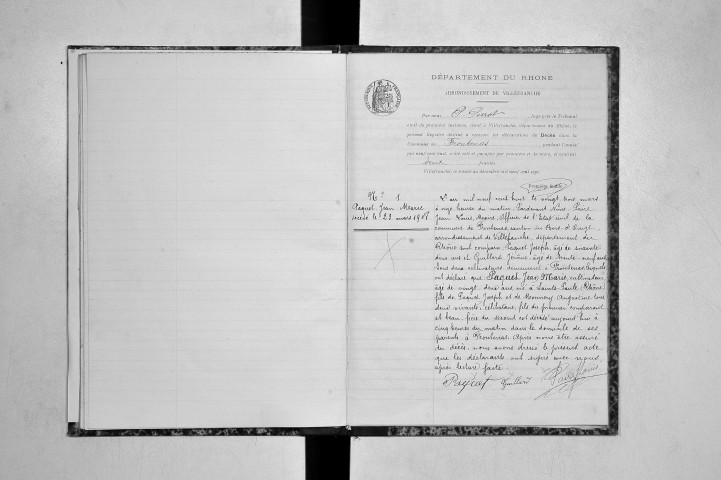 DÉPARTEMENT DU RHONE
ARRONDISSEMENT DE VILLEFRANCHE
Par nous juge près le Tribunal
civil de première instance, séant à Villefranche, département du Rhône, le
présent Registre destiné à recevoir les déclarations de Décès dans la
Commune de Frontenas pendant l'année
mil neuf cent huit, a été coté et paraphé par première et dernière, et contient
feuillets
Villefranche, ce décembre mil neuf cent sept
Premier feuillet
N° 1
Paquet Jean Marie
décédé le 23 mars 1908
L'an mil neuf cent huit le vingt trois mars
à onze heures du matin Pardevant Nous
Jean Louis, Maire, Officier de l'Etat civil de la
commune de Frontenas canton du Bois d'Oingt
arrondissement de Villefranche, département du
Rhône sont comparu Paquet Joseph, âgé de soixante
deux ans et Guillard Jérôme, âgé de trente neuf ans
tous deux cultivateurs, demeurant à Frontenas, lesquels
ont déclaré que Paquet Jean Marie, cultivateur
âgé de vingt deux ans né à Sainte Paule (Rhône)
fils de Paquet Joseph et de tous
deux vivants, célibataire, fils du premier comparant
et beau-frère du second est décédé aujourd'hui à
cinq heures du matin dans le domicile de ses
parents à Frontenas. Après nous être assuré
du décès, nous avons dressé le présent acte
que les déclarants ont signé avec nous
après lecture faite.
Paquet Guillard